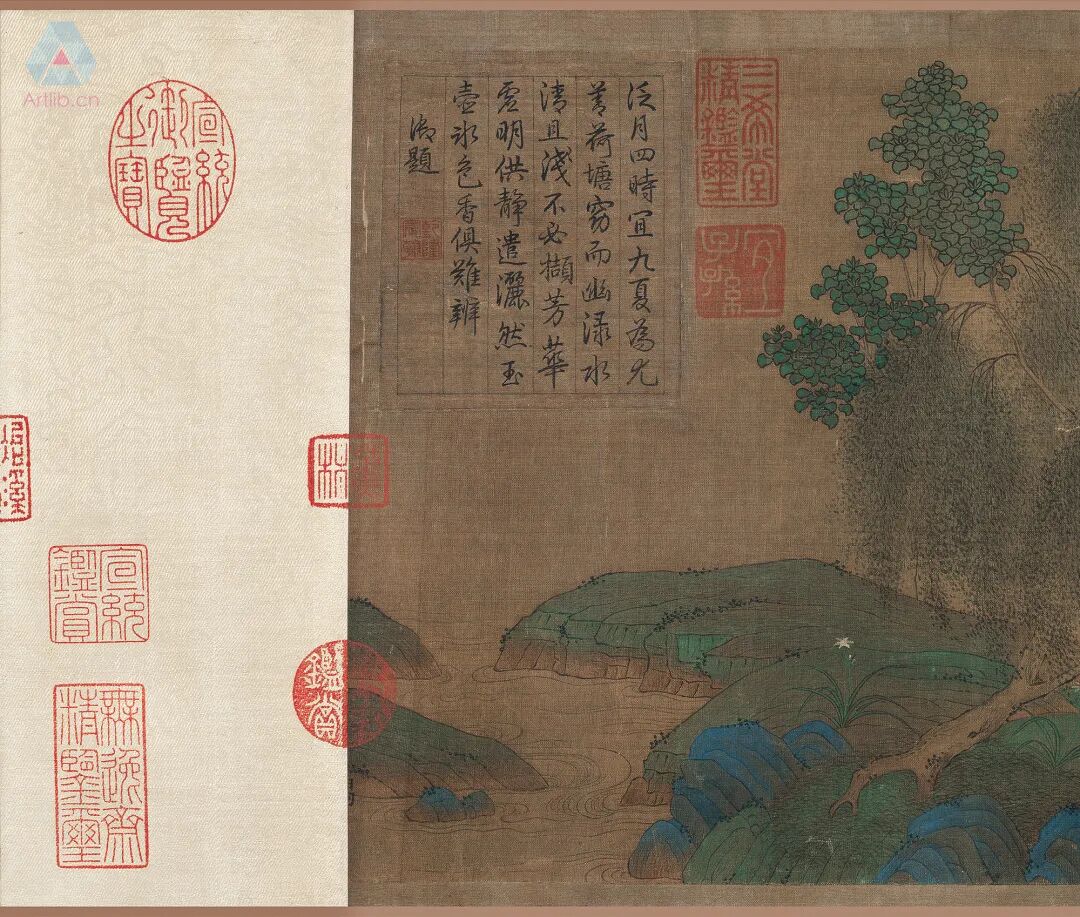 三希堂精鑑璽
宜子孫
泛月四時宜九夏為尤
善荷塘窈而幽淥水
清且淺不必擷芳華
虛明供靜遣灑然玉
壺冰色香俱難辨
御題
宣統御覽之寶
宣統鑑賞
無逸齋精鑒璽
蕉林
鑑賞
Artlib.cn